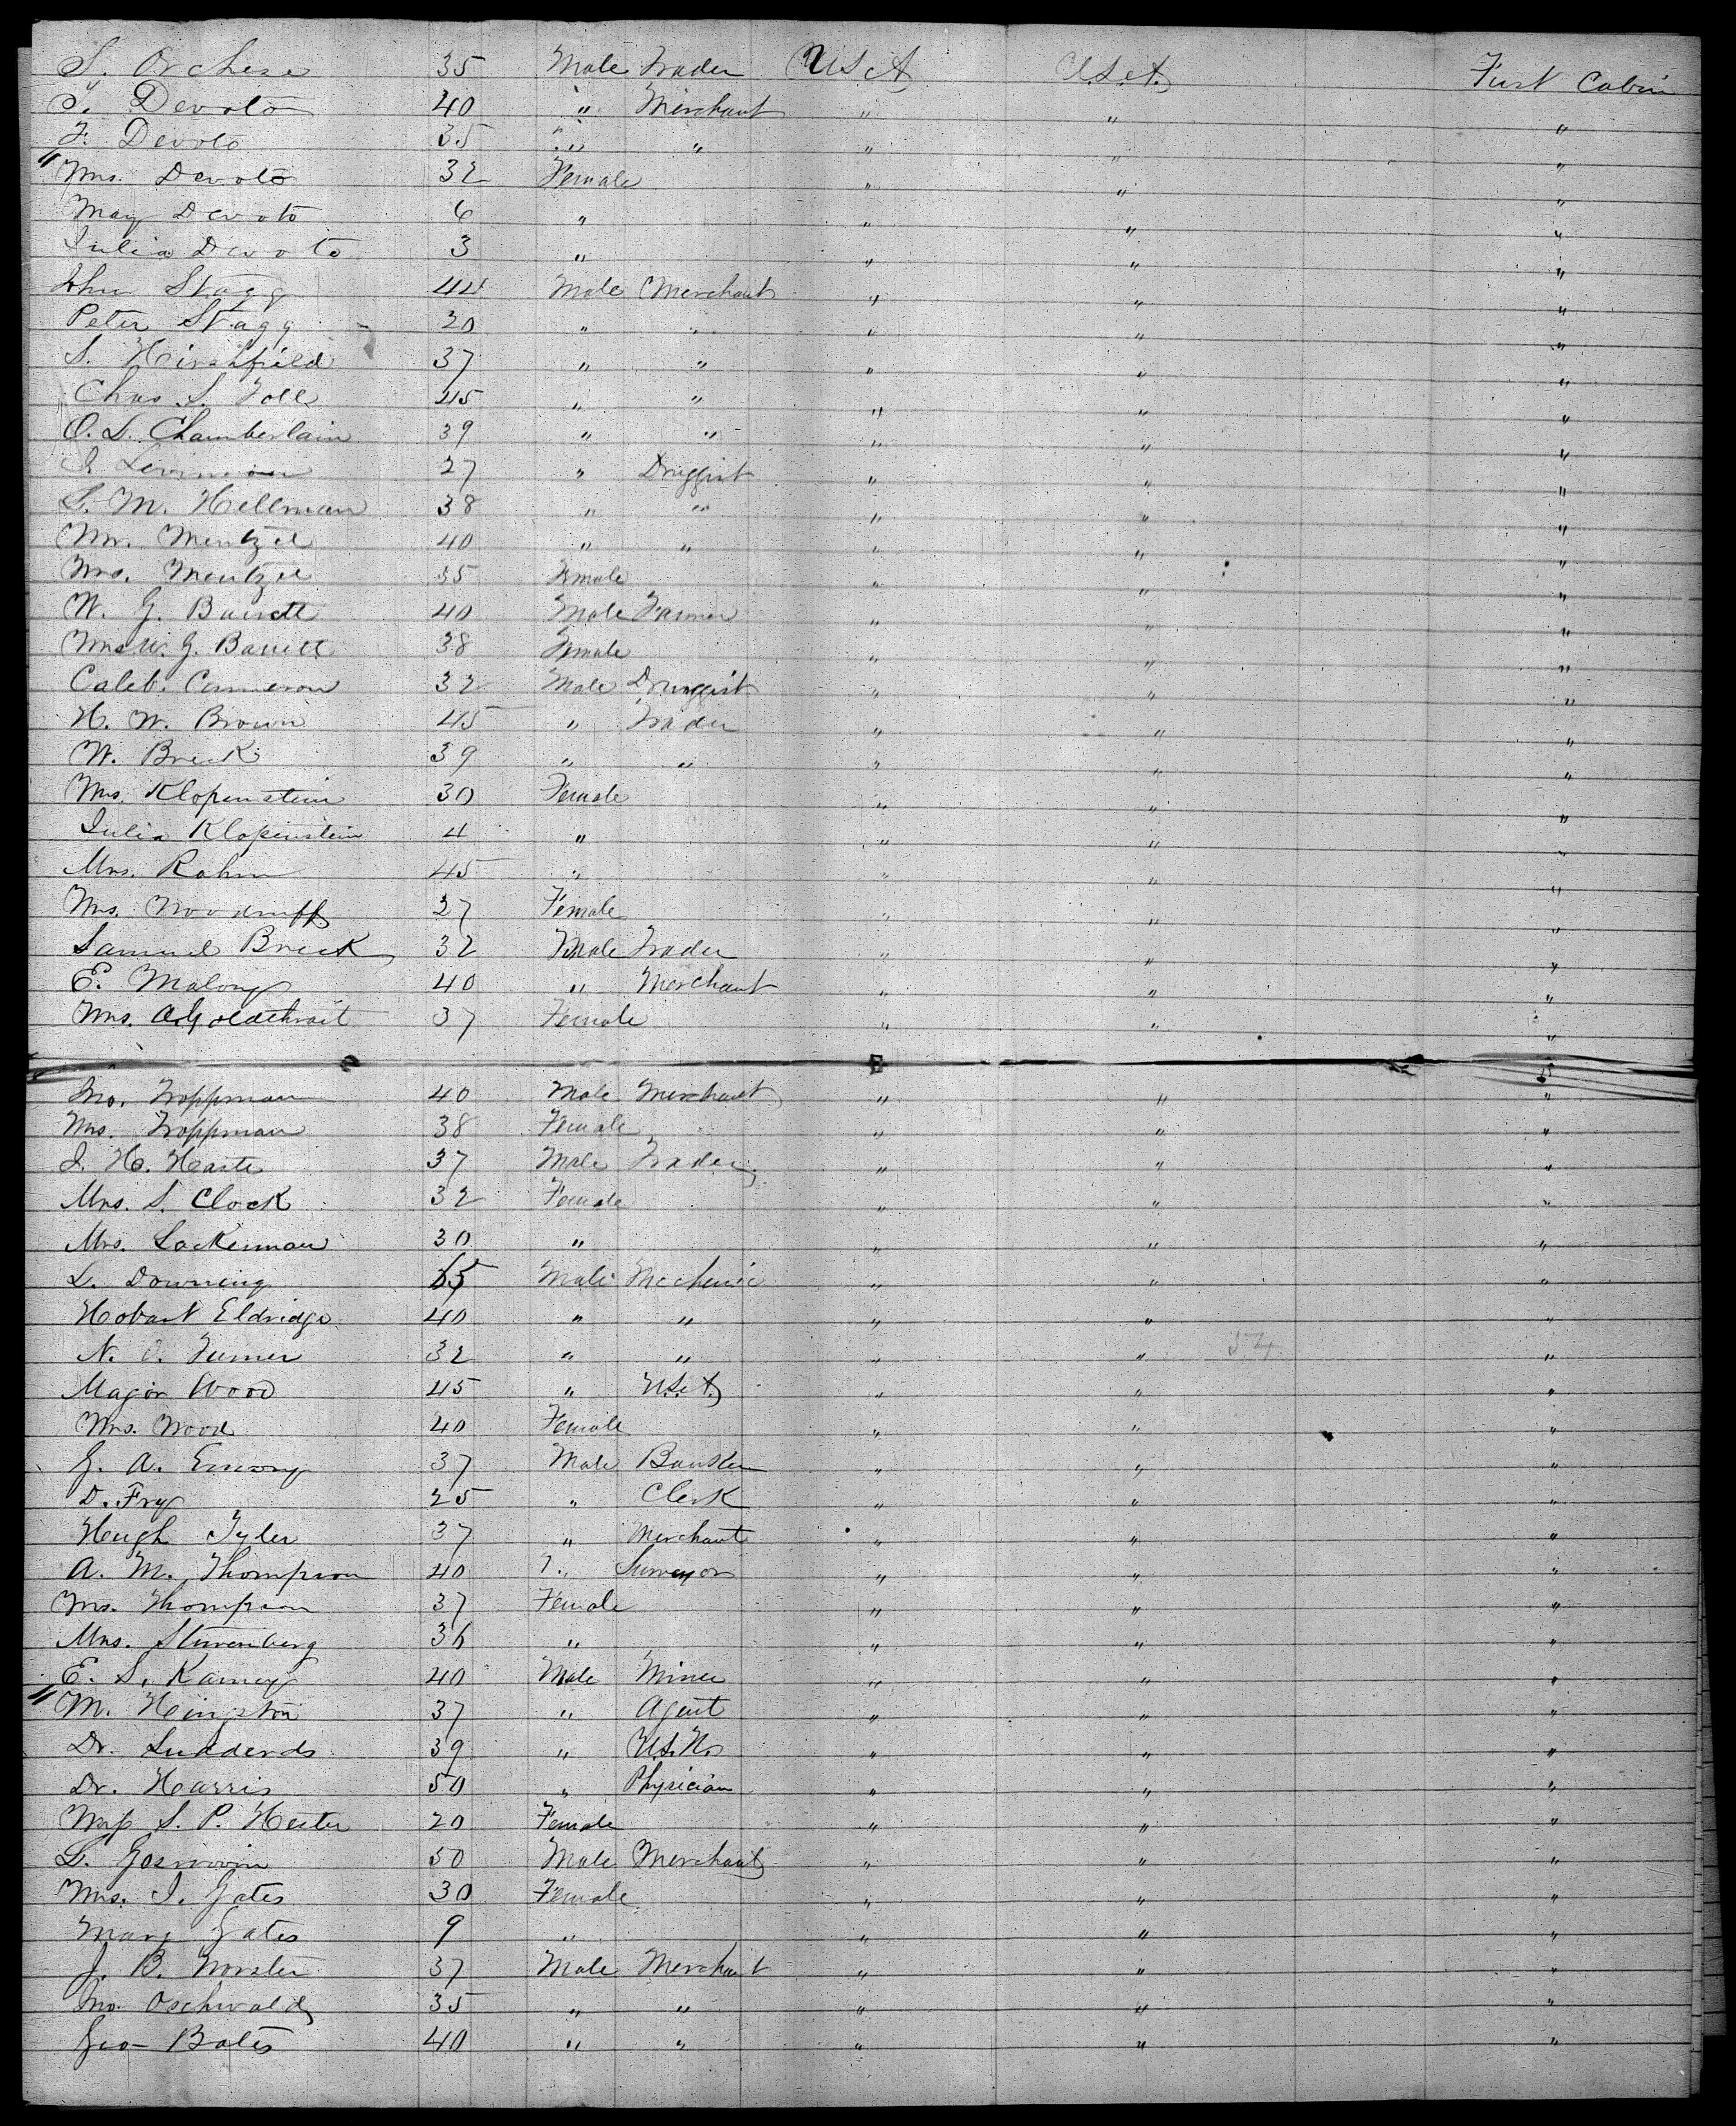 S. Orchese 35 Male Trader U.S.A U.S.A. First Cabin
S. Devoto 40 " Merchant " " "
F. Devoto 35 " " " " "
" Mrs. Devoto 32 Female " " "
May Devoto 6 " " " "
Julia Devoto 3 " " " "
John Stagg 44 Male Merchant " " "
Peter Stagg 20 " " " " "
S. Hirshfield 37 " " " " "
Chas. S. 45 " " " " "
O. L. Chamberlain 39 " " " " "
27 " Druggist " " "
S. M. Hellman 38 " " " " "
Mr. Mentzel 40 " " " " "
Mrs. Mentzel 35 Female " " "
W. G. Barrett 40 Male Farmer " " "
Mrs W. G. Barrett 38 Female " " "
Caleb. Cameron 32 Male Druggist " " "
H. W. Brown 45 " Trader " " "
W. Breck 39 " " " " "
Mrs. Klopenstein 30 Female " " "
Julia Klopenstein 4 " " " "
Mrs. Rohm 45 " " " "
Mrs. Woodruff 27 Female " " "
Samuel Breck 32 Male Trader " " "
E. Malony 40 " Merchant " " "
Mrs. A. Goldthrait 37 Female " " "
Mr. Troppman 40 Male Merchant " " "
Mrs. Troppman 38 Female " " "
J. H. Haste 37 Male Trader " " "
Mrs. S. Clock 32 Female " " "
Mrs. Lockerman 30 " " " "
L. Downing Male Mechanic " " "
Hobart Eldridge 40 " " " " "
N. O. Turner 32 " " " " "
Major Wood 45 " U.S.A. " " "
Mrs. Wood 40 Female " " "
G. A. Emory 37 Male Banker " " "
D. Fry 25 " Clerk " " "
Hugh Tyler 37 " Merchant " " "
A. M. Thompson 40 " Surveyor " " "
Mrs. Thompson 37 Female " " "
Mrs. Sturenberg 36 " " " "
E. S. Kamey 40 Male Miner " " "
" M. Hingston 37 " Agent " " "
Dr. Suddards 39 " U.S.N. " " "
Dr. Harris 50 " Physician " " "
Miss S. P. Hester 20 Female " " "
L. 50 Male Merchant " " "
Mrs. J. Gates 30 Female " " "
Mary Gates 9 " " " "
J. B. Worster 37 Male Merchant " " "
Mr. Oschwald 35 " " " " "
Geo Bates 40 " " " " "